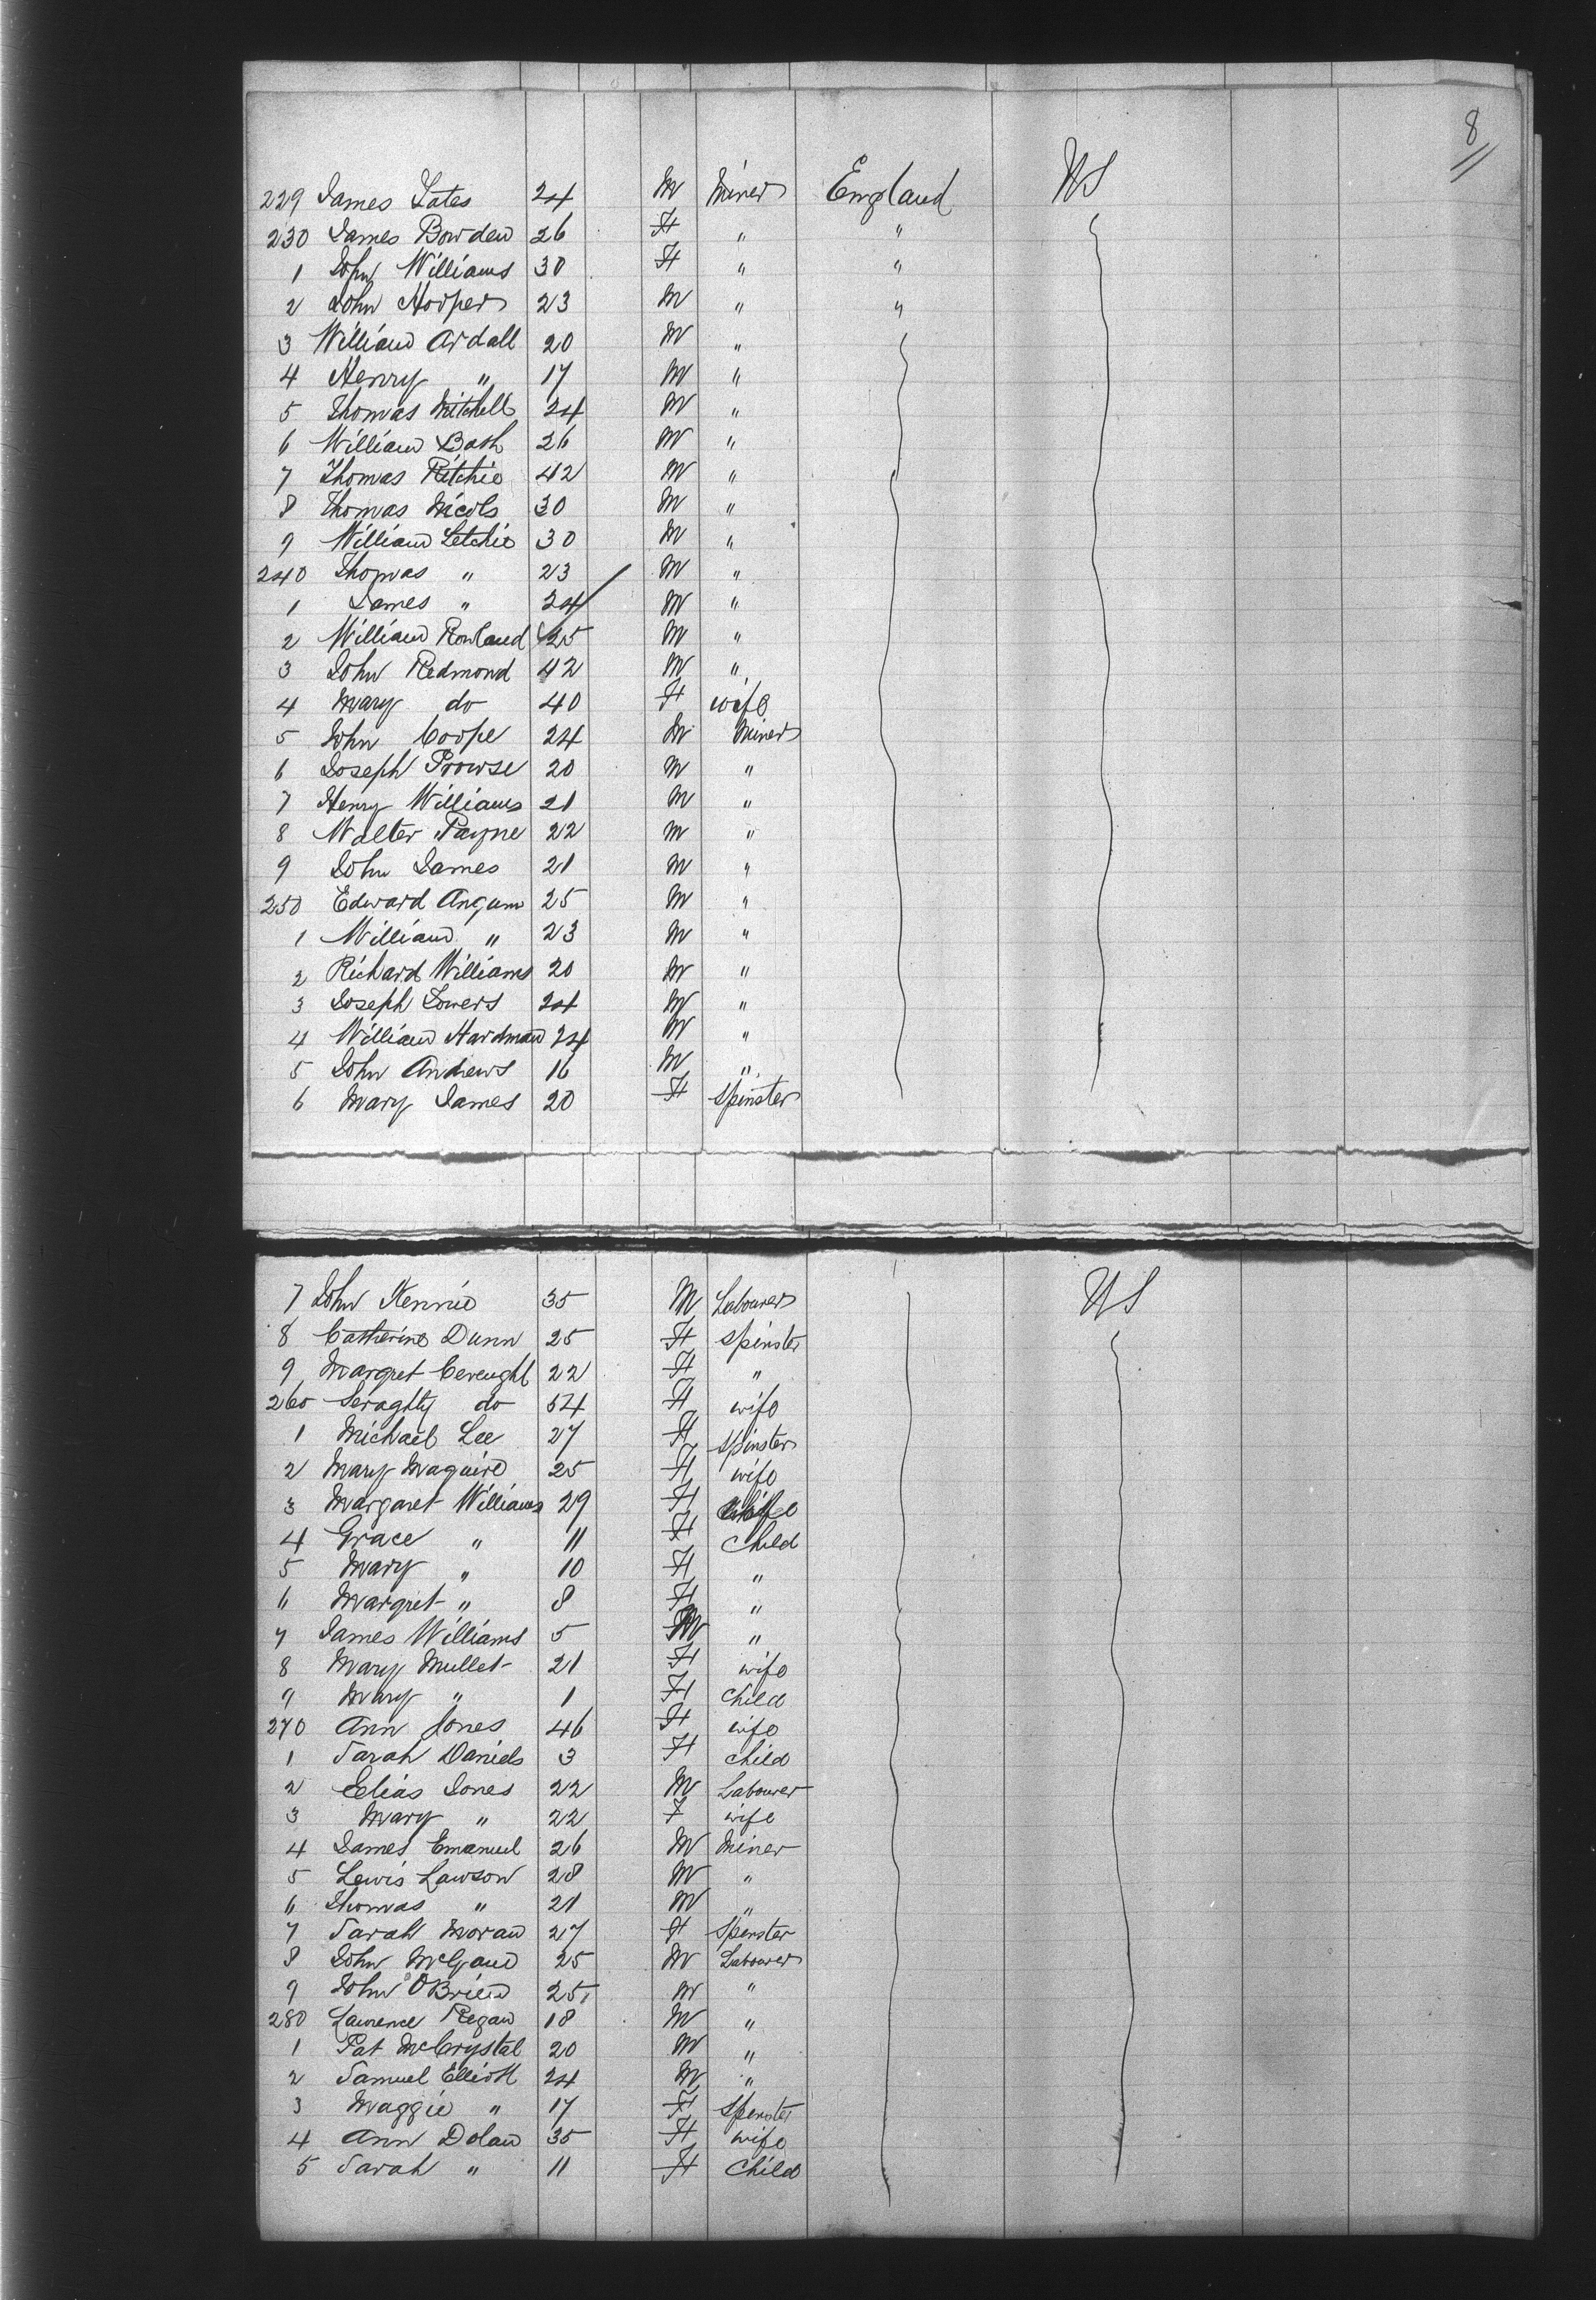 8
229 James Yates 24 M Miner England US
230 James Bowden 26 F " "
1 John Williams 30 F " "
2 John Hooper 23 M " "
3 William Ardall 20 M "
4 Henry " 17 M "
5 Thomas Mitchell 24 M "
6 William Bash 26 M "
7 Thomas Ritchie 42 M "
8 Thomas Nicols 30 M "
9 William Letchie 30 M "
240 Thomas " 23 M "
1 James " 24 M "
2 William Rowland 25 M "
3 John Redmond 42 M "
4 Mary do 40 F wife
5 John Coope 24 M Miner
6 Joseph Prowse 20 M "
7 Henry Williams 21 M "
8 Walter Payne 22 M "
9 John James 21 M "
250 Edward Angum 25 M "
1 William " 23 M "
2 Richard Williams 20 M "
3 Joseph Sowers 24 M "
4 William Hardman 24 M "
5 John Andrews 16 M "
6 Mary James 20 F Spinster
7 John Kennie 35 M Labourer US
8 Catherine Dunn 25 F Spinster
9 Margret 22 F "
260 do 54 F wife
1 Michael Lee 27 F Spinster
2 Mary Maguire 25 F wife
3 Margaret Williams 29 F wife
4 Grace " 11 F Child
5 Mary " 10 F "
6 Margret " 8 F "
7 James Williams 5 M "
8 Mary Mullet 21 F wife
9 Mary " 1 F Child
270 Ann Jones 46 F wife
1 Sarah Daniels 3 F Child
2 Elias Jones 22 M Labourer
3 Mary " 22 F wife
4 James Emanuel 26 M Miner
5 Lewis Lawson 28 M "
6 Thomas " 21 M "
7 Sarah Moran 27 F Spinster
8 John McGaud 25 M Labourer
9 John O'Brien 25 M "
280 Lawrence Regan 18 M "
1 Pat McCrystal 20 M "
2 Samuel Elliott 24 M "
3 Maggie " 17 F Spinster
4 Ann Dolan 35 F wife
5 Sarah " 11 F Child